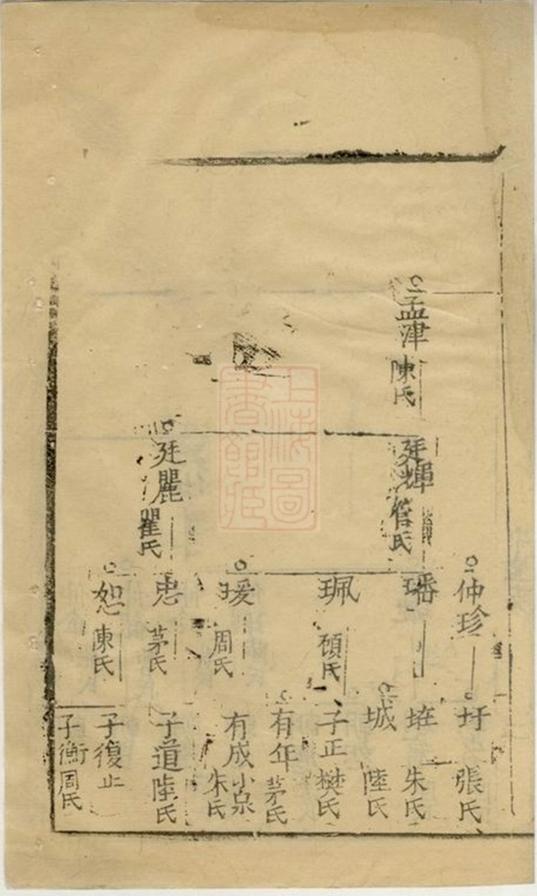 孟津 陳氏
廷輝 管氏
廷麗 瞿氏
仲珍
璠
珮 顧氏
瑗 周氏
忠 茅氏
恕 陳氏
圩 張氏
珄 朱氏
城 陸氏
子正 樊氏
有年 茅氏
有成 小泉 朱氏
子道 陸氏
子復 止
子衡 周氏
上海圖書館藏